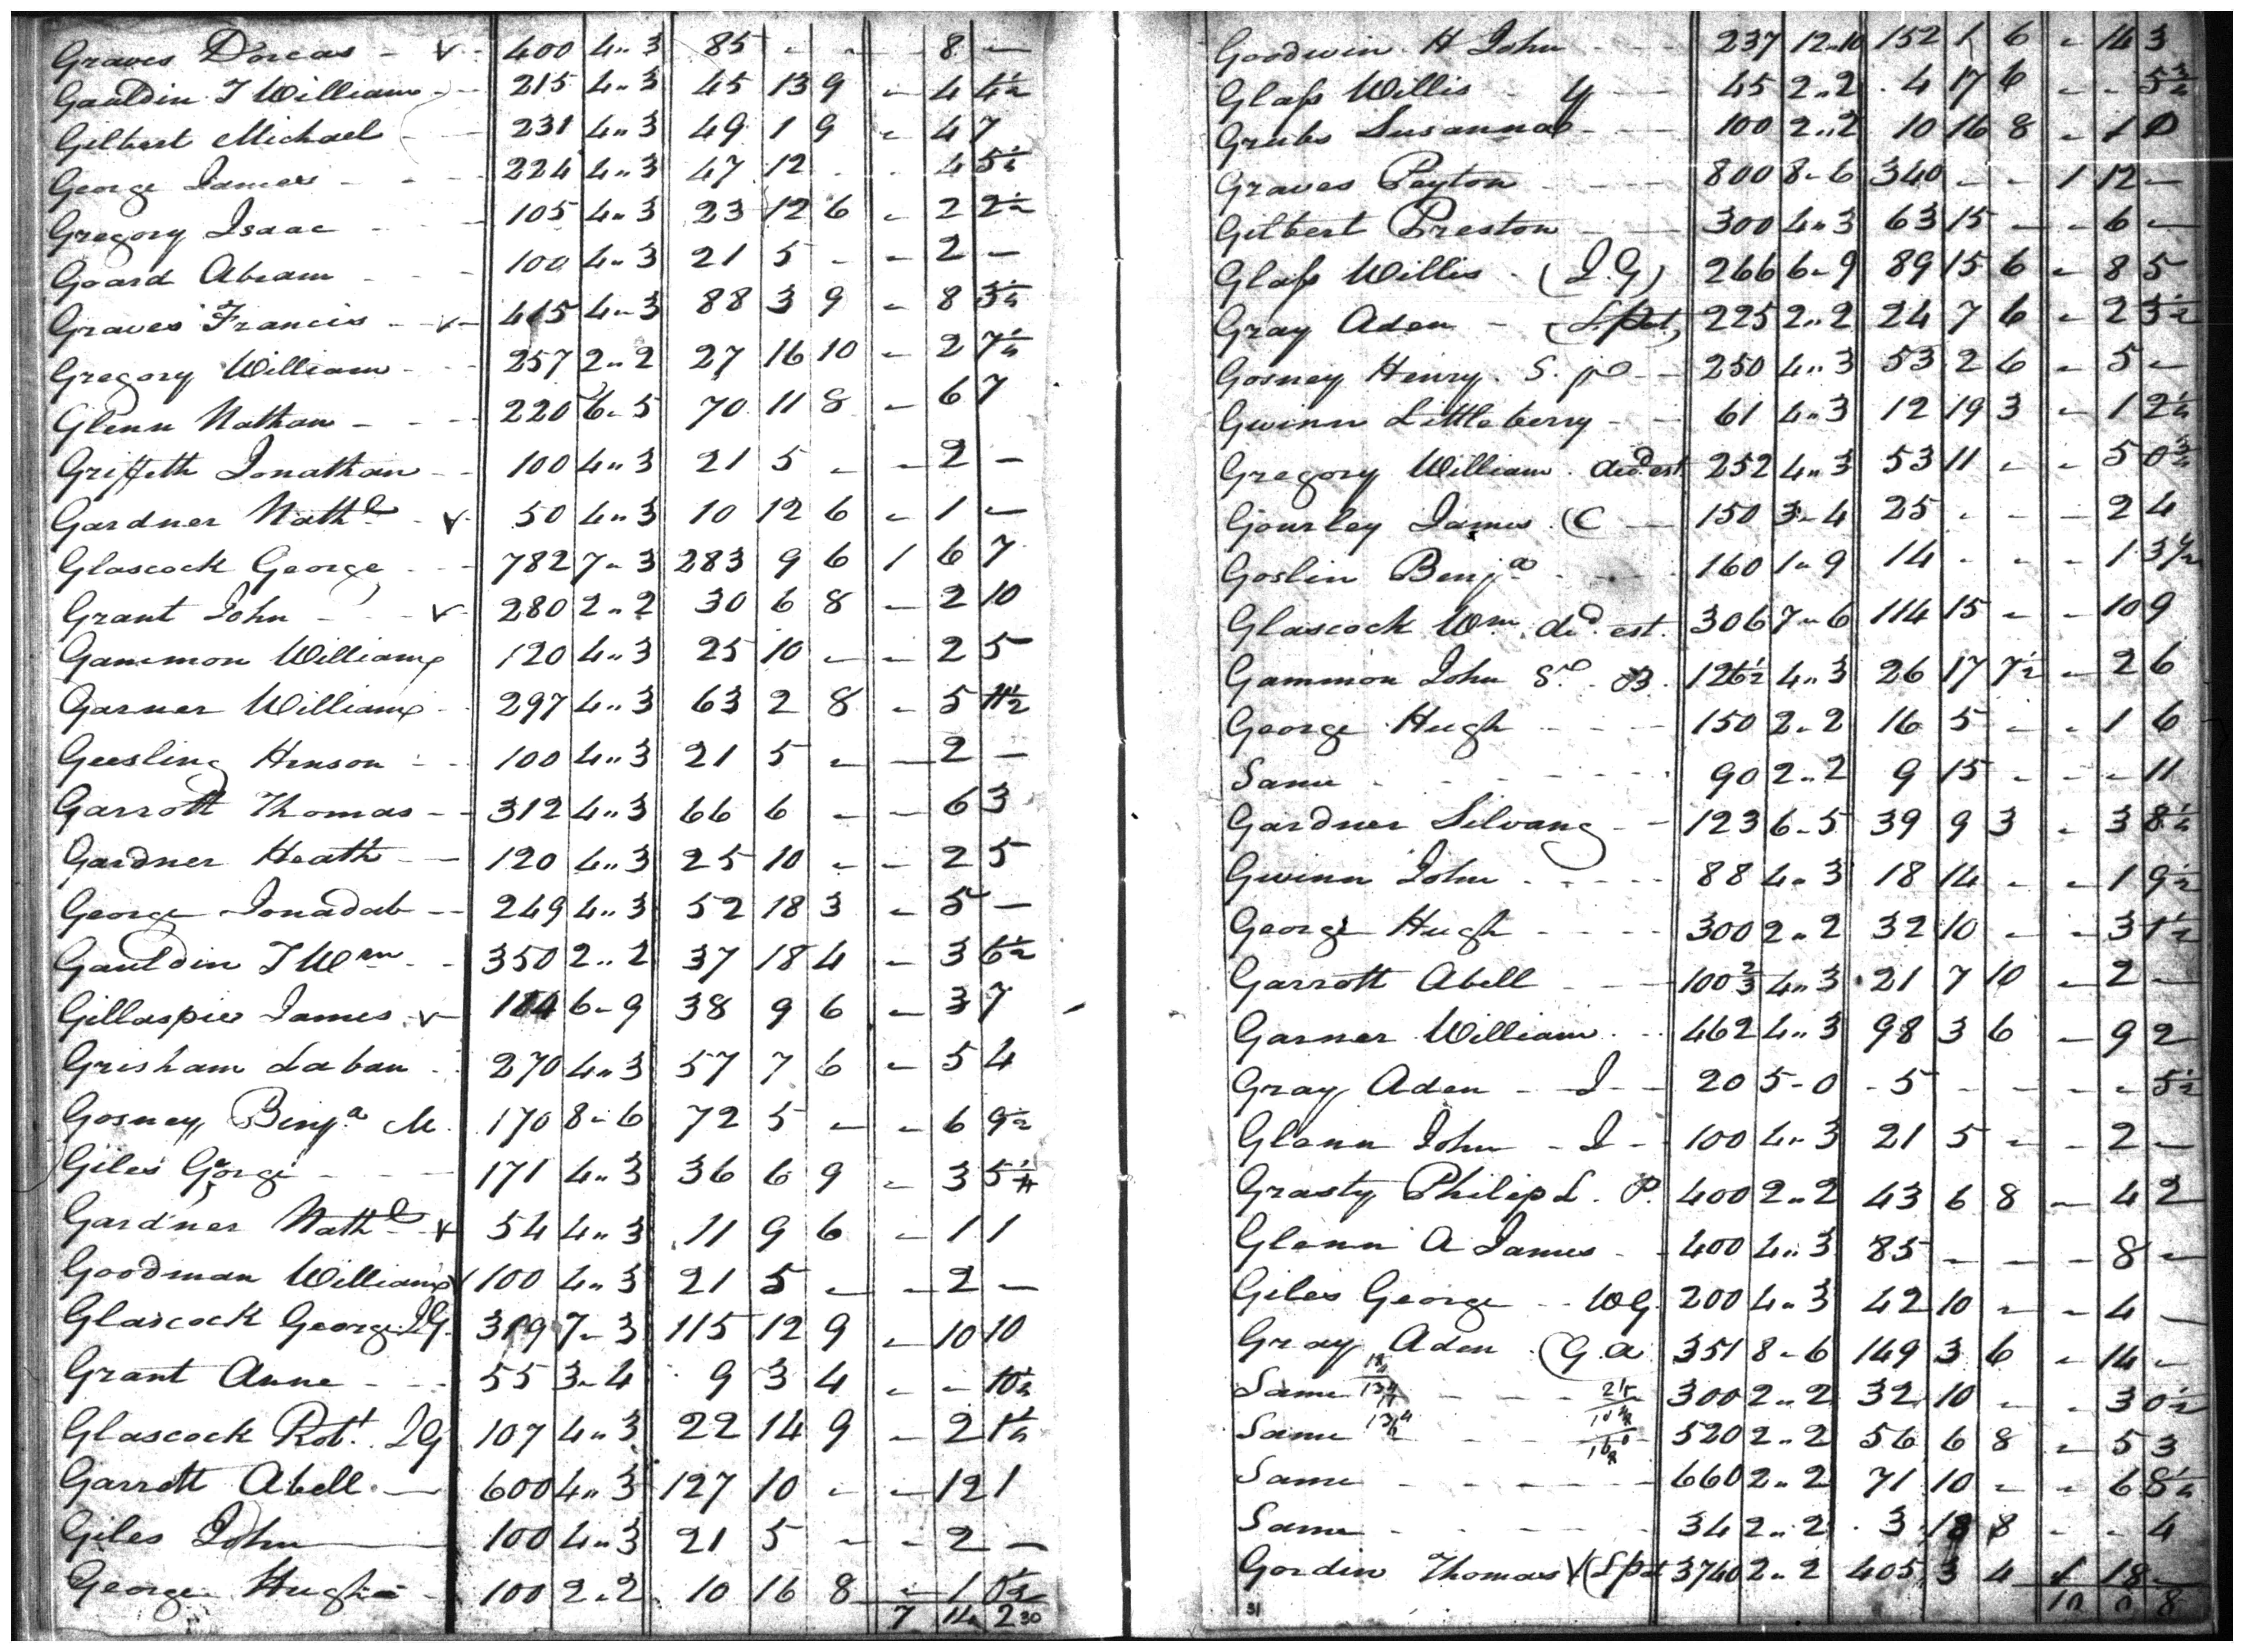 Graves Dorcas - v - 400 4 " 3 85 - - - 8 -
Gauldin T William - 215 4 " 3 45 13 9 - 4 4½
Gilbert Michael - 231 4 " 3 49 1 9 - 4 7
George James - - 224 4 " 3 47 12 - - 4 5½
Gregory Isaac - - 105 4 " 3 23 12 6 - 2 2½
Goard Abram - - 100 4 " 3 21 5 - - 2 -
Graves Francis - v - 415 4 " 3 88 3 9 - 8 3½
Gregory William - - 257 2 " 2 27 16 10 - 2 7½
Glenn Nathan - - - 220 6 - 5 70 11 8 - 6 7
Griffeth Jonathan - - 100 4 " 3 21 5 - - 2 -
Gardner Nathl - v - 50 4 " 3 10 12 6 - 1 -
Glascock George - - 782 7 " 3 283 9 6 1 6 7
Grant John - - v 280 2 " 2 30 6 8 - 2 10
Gammon William 120 4 " 3 25 10 - - 2 5
Garner William - 297 4 " 3 63 2 8 - 5 11½
Geesling Henson - - 100 4 " 3 21 5 - - 2 -
Garrott Thomas - - 312 4 " 3 66 6 - - 6 3
Gardner Heath - - 120 4 " 3 25 10 - - 2 5
George Jonadab - - 249 4 " 3 52 18 3 - 5 -
Gauldin T Wm - - 350 2 " 2 37 18 4 - 3 6½
Gillaspie James - v - 114 6 - 9 38 9 6 - 3 7
Grisham Laban - 270 4 " 3 57 7 6 - 5 4
Gosney Benja M. 170 8 - 6 72 5 - - 6 9½
Giles George - - - 171 4 " 3 36 6 9 - 3 5¼
Gardner Nathl - v 54 4 " 3 11 9 6 - 1 1
Goodman William v 100 4 " 3 21 5 - - 2 -
Glascock George I G. 319 7 - 3 115 12 9 - 10 10
Grant Anne - - - 55 3 - 4 9 3 4 - - 10½
Glascock Robt. I G 107 4 " 3 22 14 9 - 2 1½
Garrott Abell - 600 4 " 3 127 10 - - 12 1
Giles John - 100 4 " 3 21 5 - - 2 -
George Hugh - 100 2 " 2 10 16 8 - 1 0½
7 14 2 30
Goodwin H John - - - 237 12 " 10 152 1 6 - 14 3
Glass Willis - - 45 2 " 2 4 17 6 - - 5¾
Grubs Susannah - - - 100 2 " 2 10 16 8 - 1 0
Graves Peyton - - - 800 8 - 6 340 - - 1 12 -
Gilbert Preston - - 300 4 " 3 63 15 - - 6 -
Glass Willis - (I. G) 266 6 - 9 89 15 6 - 8 5
Gray Aden - 225 2 " 2 24 7 6 - 2 3½
Gosney Henry. S. - 250 4 " 3 53 2 6 - 5 -
Gwinn Littleberry - - 61 4 " 3 12 19 3 - 1 2½
Gregory William . decd est. 252 4 " 3 53 11 - - 5 0¾
Gourley James . (C - 150 3 - 4 25 - - - 2 4
Goslin Benja - - - 160 1 " 9 14 - - - 1 3½
Glascock Wm decd est. 306 7 " 6 114 15 - - 10 9
Gammon John Sr. B. 126½ 4 " 3 26 17 7½ - 2 6
George Hugh - - - 150 2 - 2 16 5 - - 1 6
Same - - - - - 90 2 " 2 9 15 - - - 11
Gardner Silvany - - 123 6 - 5 39 9 3 - 3 8½
Gwinn John - - - - 88 4 " 3 18 14 - - 1 9½
George Hugh - - - - 300 2 " 2 32 10 - - 3 1½
Garrott Abell - - - 100⅔ 4 " 3 21 7 10 - 2 -
Garner William - - 462 4 " 3 98 3 6 - 9 2
Gray Aden - - I - - 20 5 - 0 - 5 - - - - 5½
Glenn John - - I - 100 4 " 3 21 5 - - 2 -
Grasty Philip L . P. 400 2 " 2 43 6 8 - 4 2
Glenn A James - - 400 4 " 3 85 - - - 8 -
Giles George - - W G 200 4 " 3 42 10 - - 4 -
Gray Aden . (G. a 351 8 - 6 149 3 6 - 14 -
Same - - - 300 2 " 2 32 10 - - 3 0½
Same - - 520 2 " 2 56 6 8 - 5 3
Same - - - - - 660 2 " 2 71 10 - - 6 8½
Same - - - - 34 2 " 2 3 13 8 - - 4
Gordin Thomas v 3740 2 " 2 405 3 4 1 18 -
31 10 0 8